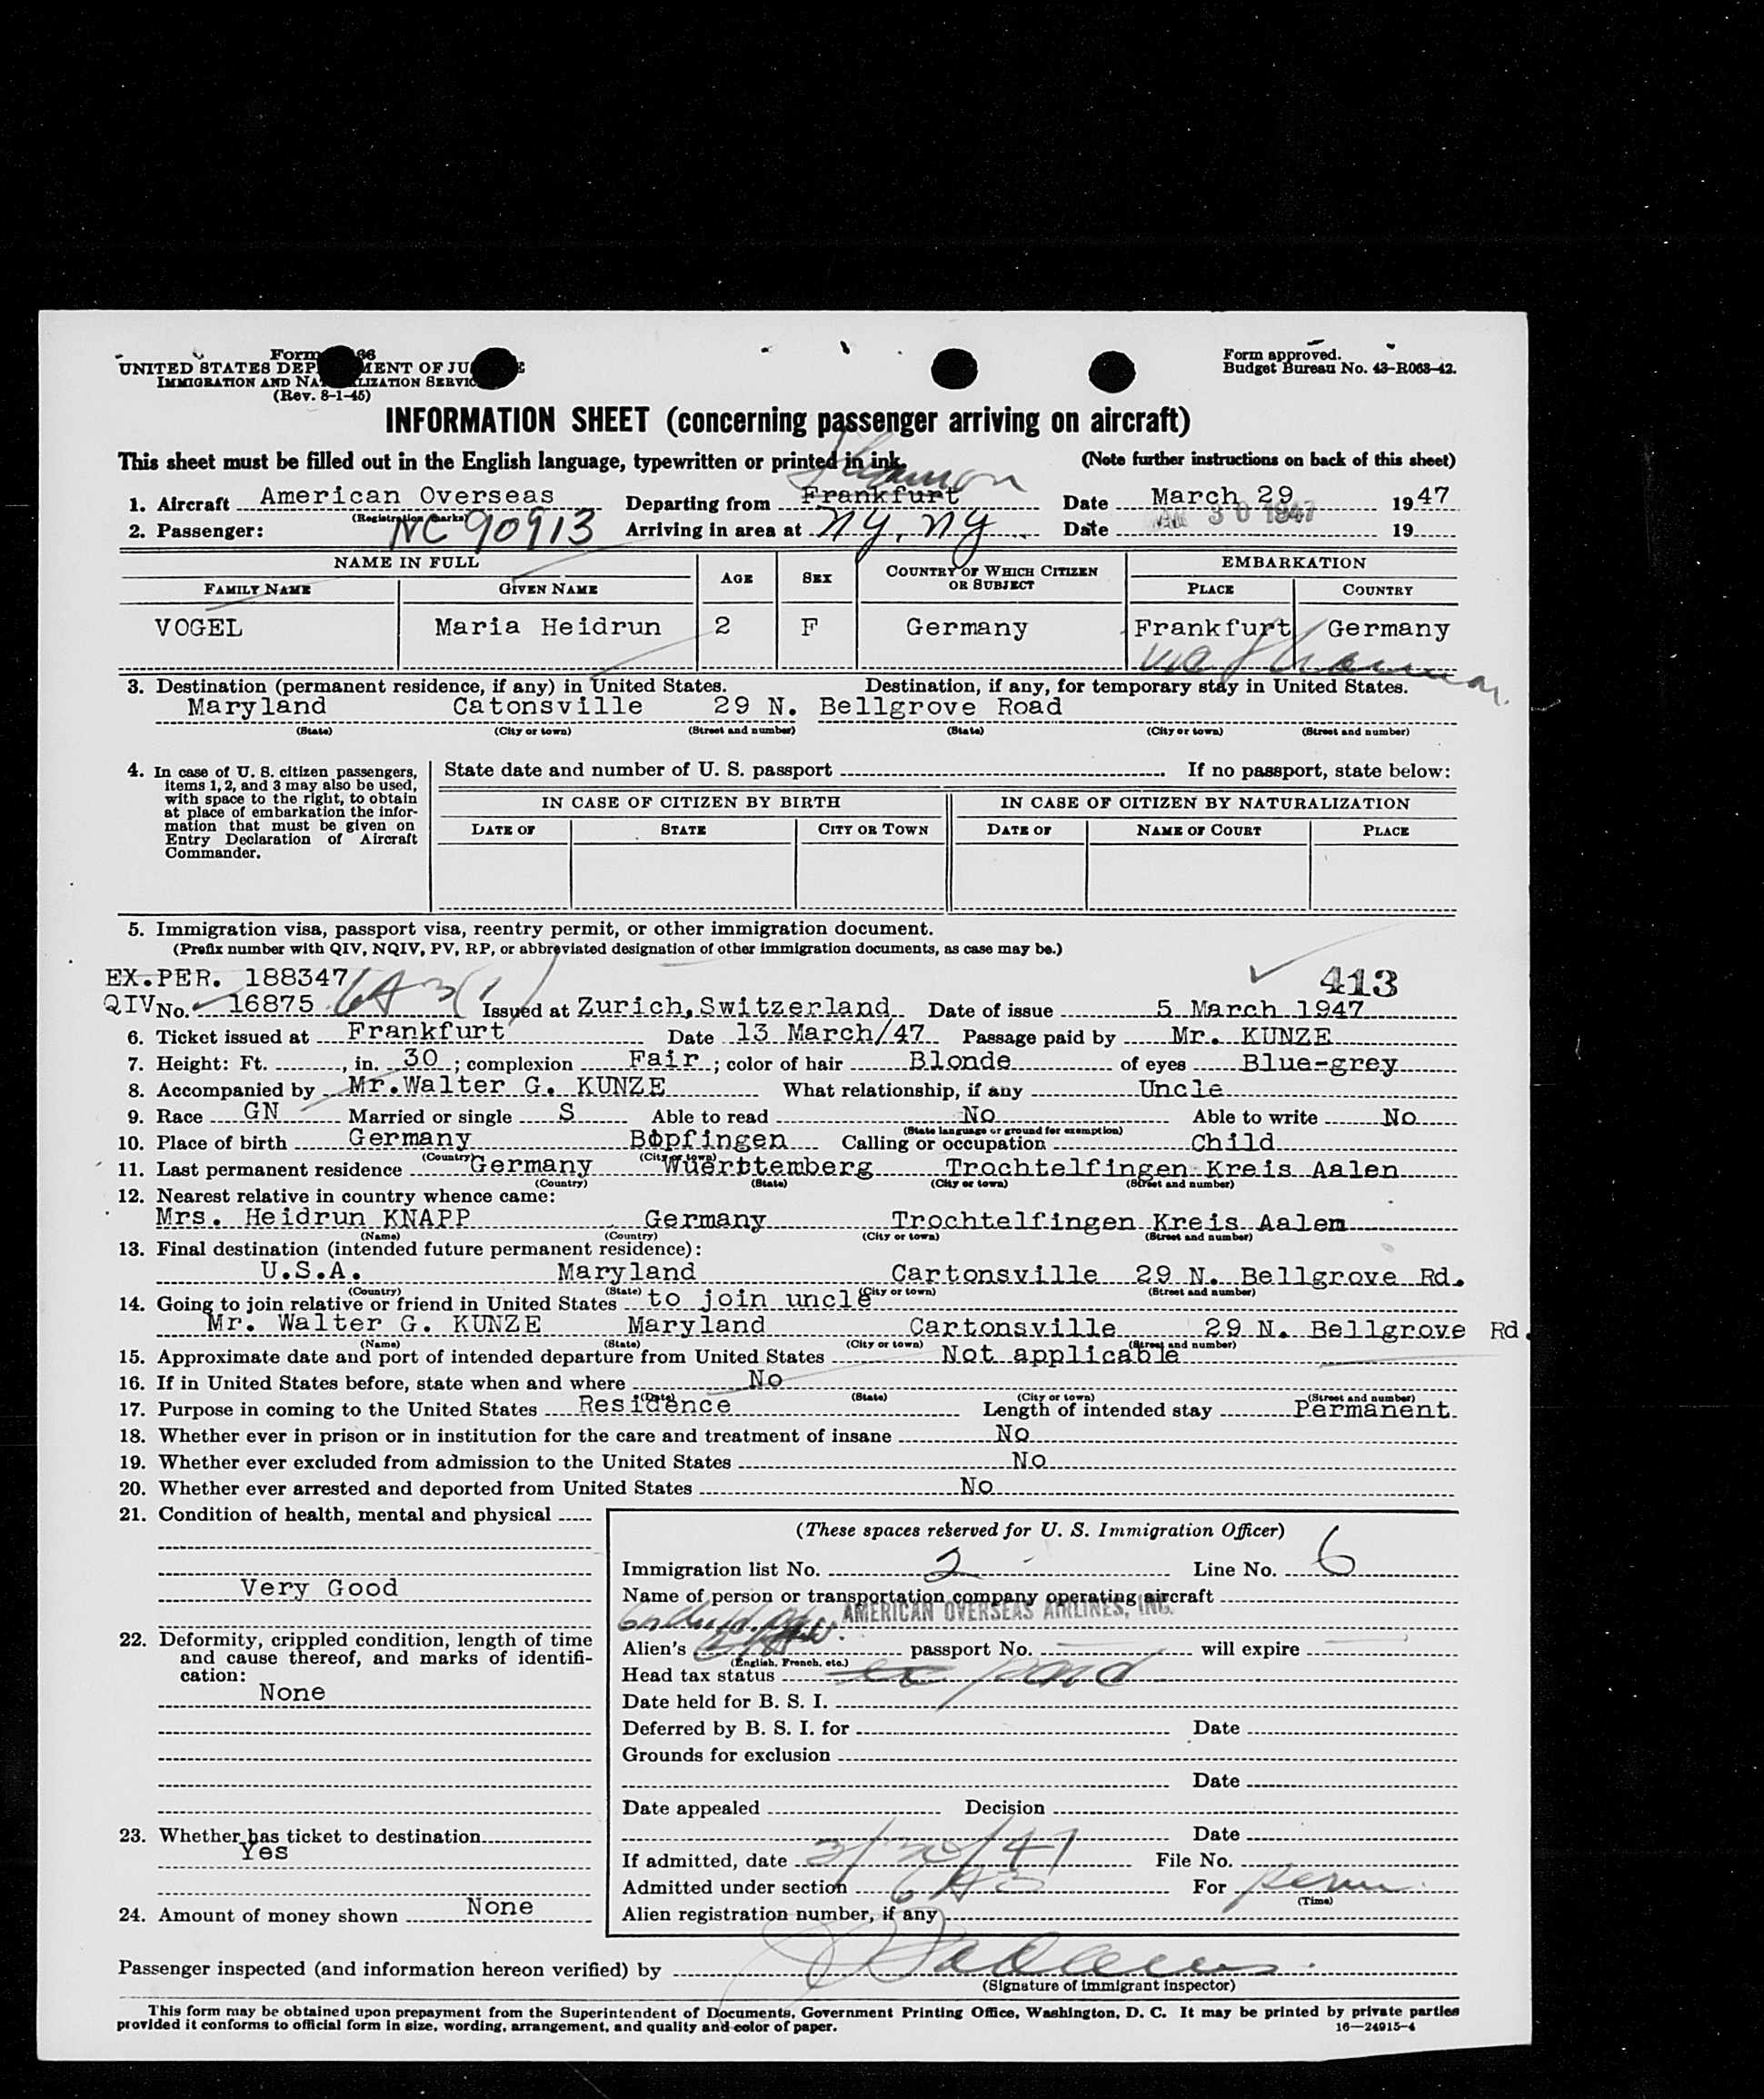 Form 66
UNITED STATES DEP MENT OF JU E
IMMIGRATION AND NA LIZATION SERVIC
(Rev. 8-1-45)
Form approved.
Budget Bureau No. 43-R063-42.
INFORMATION SHEET (concerning passenger arriving on aircraft)
This sheet must be filled out in the English language, typewritten or printed in ink. (Note further instructions on back of this sheet)
Shannon
1. Aircraft American Overseas Departing from Frankfurt Date March 29 1947
(Registration marks)
2. Passenger: NC 90913 Arriving in area at NY, NY Date 30 1947 19
NAME IN FULL AGE SEX COUNTRY OF WHICH CITIZEN OR SUBJECT EMBARKATION
FAMILY NAME GIVEN NAME PLACE COUNTRY
VOGEL Maria Heidrun 2 F Germany Frankfurt Germany
via Shannon
3. Destination (permanent residence, if any) in United States. Destination, if any, for temporary stay in United States.
Maryland Catonsville 29 N. Bellgrove Road
(State) (City or town) (Street and number) (State) (City or town) (Street and number)
4. In case of U. S. citizen passengers, items 1, 2, and 3 may also be used, with space to the right, to obtain at place of embarkation the information that must be given on Entry Declaration of Aircraft Commander.
State date and number of U. S. passport If no passport, state below:
IN CASE OF CITIZEN BY BIRTH IN CASE OF CITIZEN BY NATURALIZATION
DATE OF STATE CITY OR TOWN DATE OF NAME OF COURT PLACE
5. Immigration visa, passport visa, reentry permit, or other immigration document.
(Prefix number with QIV, NQIV, PV, RP, or abbreviated designation of other immigration documents, as case may be.)
EX.PER. 188347 6A3(1) 413
QIV No. 16875 Issued at Zurich, Switzerland Date of issue 5 March 1947
6. Ticket issued at Frankfurt Date 13 March/47 Passage paid by Mr. KUNZE
7. Height: Ft. , in. 30 ; complexion Fair ; color of hair Blonde of eyes Blue-grey
8. Accompanied by Mr.Walter G. KUNZE What relationship, if any Uncle
9. Race GN Married or single S Able to read No Able to write No
(State language or ground for exemption)
10. Place of birth Germany Bopfingen Calling or occupation Child
(Country) (City or town)
11. Last permanent residence Germany Wuerttemberg Trochtelfingen Kreis Aalen
(Country) (State) (City or town) (Street and number)
12. Nearest relative in country whence came:
Mrs. Heidrun KNAPP Germany Trochtelfingen Kreis Aalen
(Name) (Country) (City or town) (Street and number)
13. Final destination (intended future permanent residence):
U.S.A. Maryland Cartonsville 29 N. Bellgrove Rd.
(Country) (State) (City or town) (Street and number)
14. Going to join relative or friend in United States to join uncle
Mr. Walter G. KUNZE Maryland Cartonsville 29 N. Bellgrove Rd.
(Name) (State) (City or town) (Street and number)
15. Approximate date and port of intended departure from United States Not applicable
16. If in United States before, state when and where No
(Date) (State) (City or town) (Street and number)
17. Purpose in coming to the United States Residence Length of intended stay Permanent
18. Whether ever in prison or in institution for the care and treatment of insane No
19. Whether ever excluded from admission to the United States No
20. Whether ever arrested and deported from United States No
21. Condition of health, mental and physical
Very Good
22. Deformity, crippled condition, length of time and cause thereof, and marks of identification:
None
23. Whether has ticket to destination
Yes
24. Amount of money shown None
(These spaces reserved for U. S. Immigration Officer)
Immigration list No. 2 Line No. 6
Name of person or transportation company operating aircraft
AMERICAN OVERSEAS AIRLINES, INC.
Alien's passport No. will expire
(English, French, etc.)
Head tax status ex paid
Date held for B. S. I.
Deferred by B. S. I. for Date
Grounds for exclusion
Date
Date appealed Decision
Date
If admitted, date 3/30/47 File No.
Admitted under section 6A3 For perm
(Time)
Alien registration number, if any
Passenger inspected (and information hereon verified) by
(Signature of immigrant inspector)
This form may be obtained upon prepayment from the Superintendent of Documents, Government Printing Office, Washington, D. C. It may be printed by private parties
provided it conforms to official form in size, wording, arrangement, and quality and color of paper. 16—24915-4